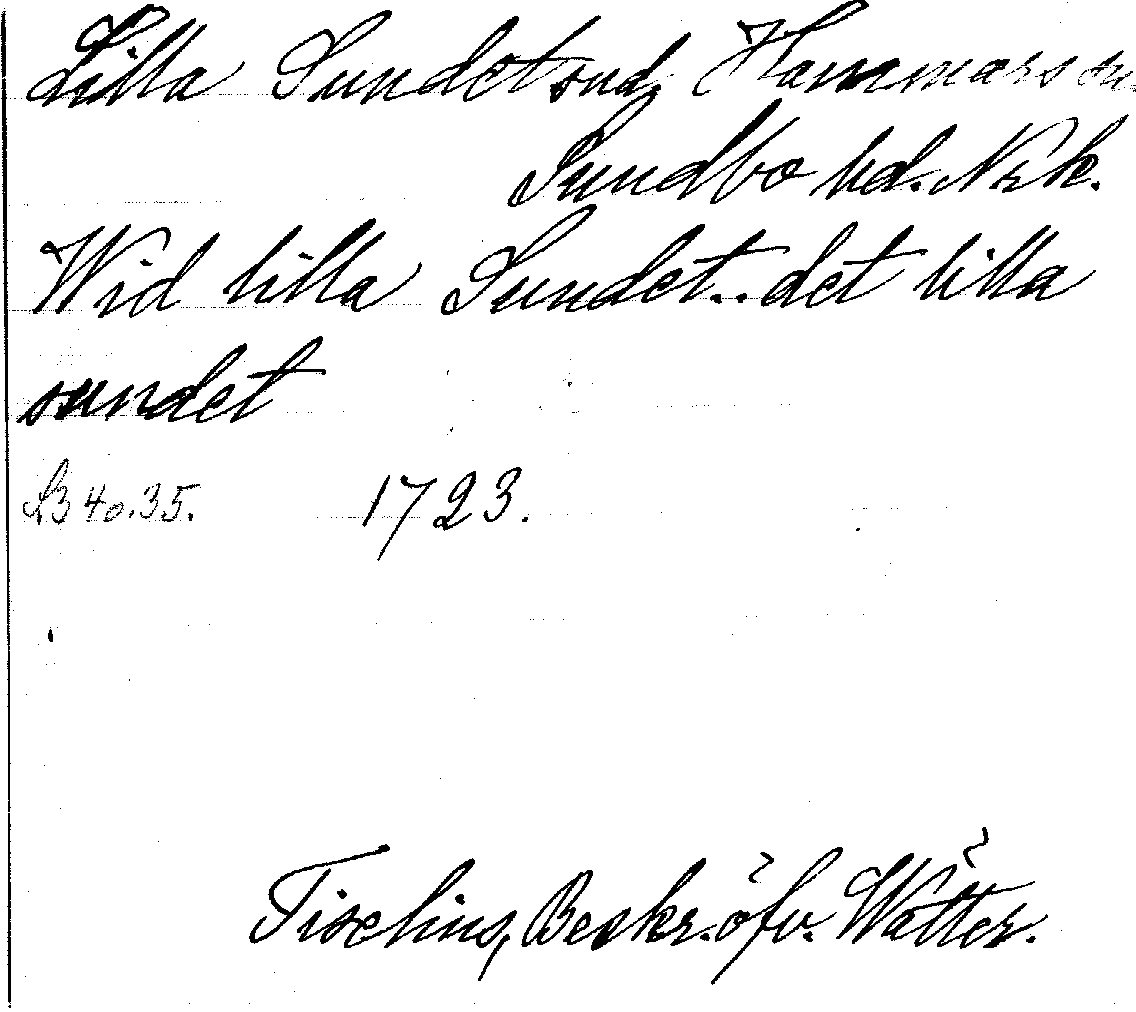 Lilla Sundet sund, Hammars sn.
Sundbo hd. Nrk.
Wid lilla Sundet..det lilla
sundet
L3 40.35. 1723.
Tiselius, Beskr. öfv. Wätter.